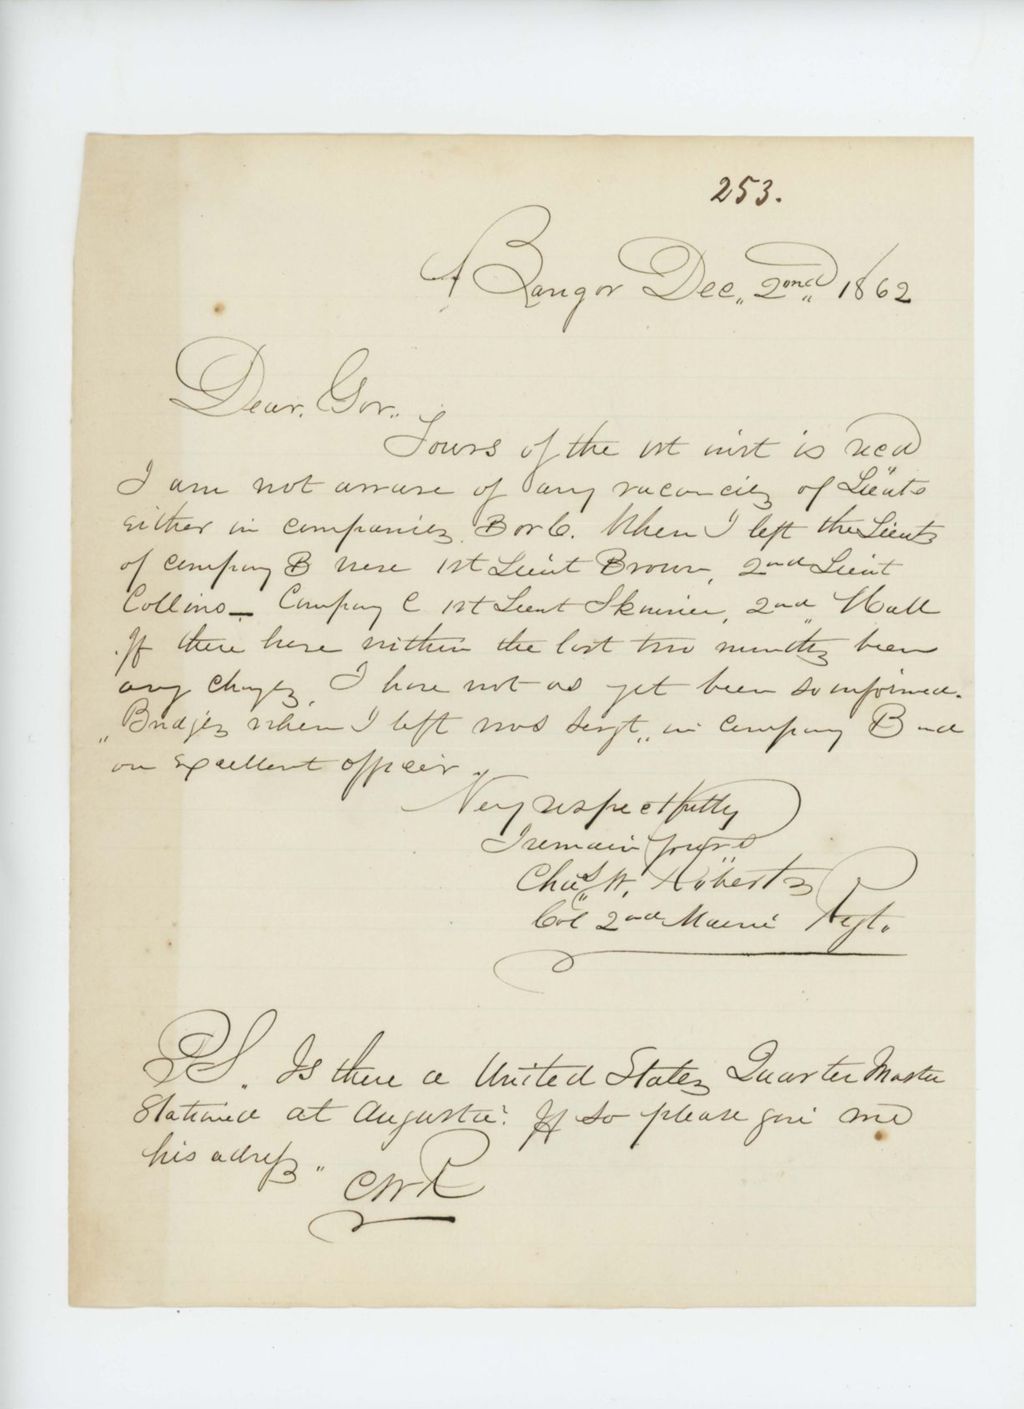 253.
Bangor Dec. 2nd 1862
Dear Gov.
Yours of the 1st inst is recd
I am not aware of any vacancies of Lieuts
either in companies B or C. When I left the Lieuts
of company B were 1st Lieut Brown, 2nd Lieut
Collins – Company C 1st Lieut Skinner, 2nd Hall
If there have within the last two months been
any changes, I have not as yet been so informed.
Bridges when I left was Sergt. in Company B and
an excellent officer.
Very respectfully
I remain yours
Chas. W. Roberts
Col 2nd Maine Regt.
PS. Is there a United States Quarter Master
Stationed at Augusta? If so please give me
his adress
CWR